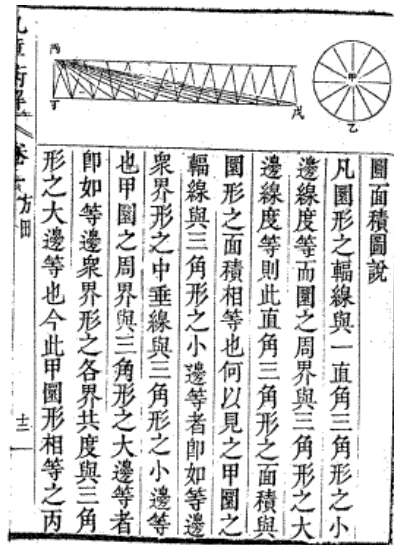 丙
丁
戊
甲
乙
圓面積圖說
凡圜形之輻線與一直角三角形之小
邊線度等而圜之周界與三角形之大
邊線度等則此直角三角形之面積與
圜形之面積相等也何以見之甲圜之
輻線與三角形之小邊等者卽如等邊
衆界形之中垂線與三角形之小邊等
也甲圜之周界與三角形之大邊等者
卽如等邊衆界形之各界共度與三角
形之大邊等也今此甲圜形相等之丙
九章術解
方田
十三